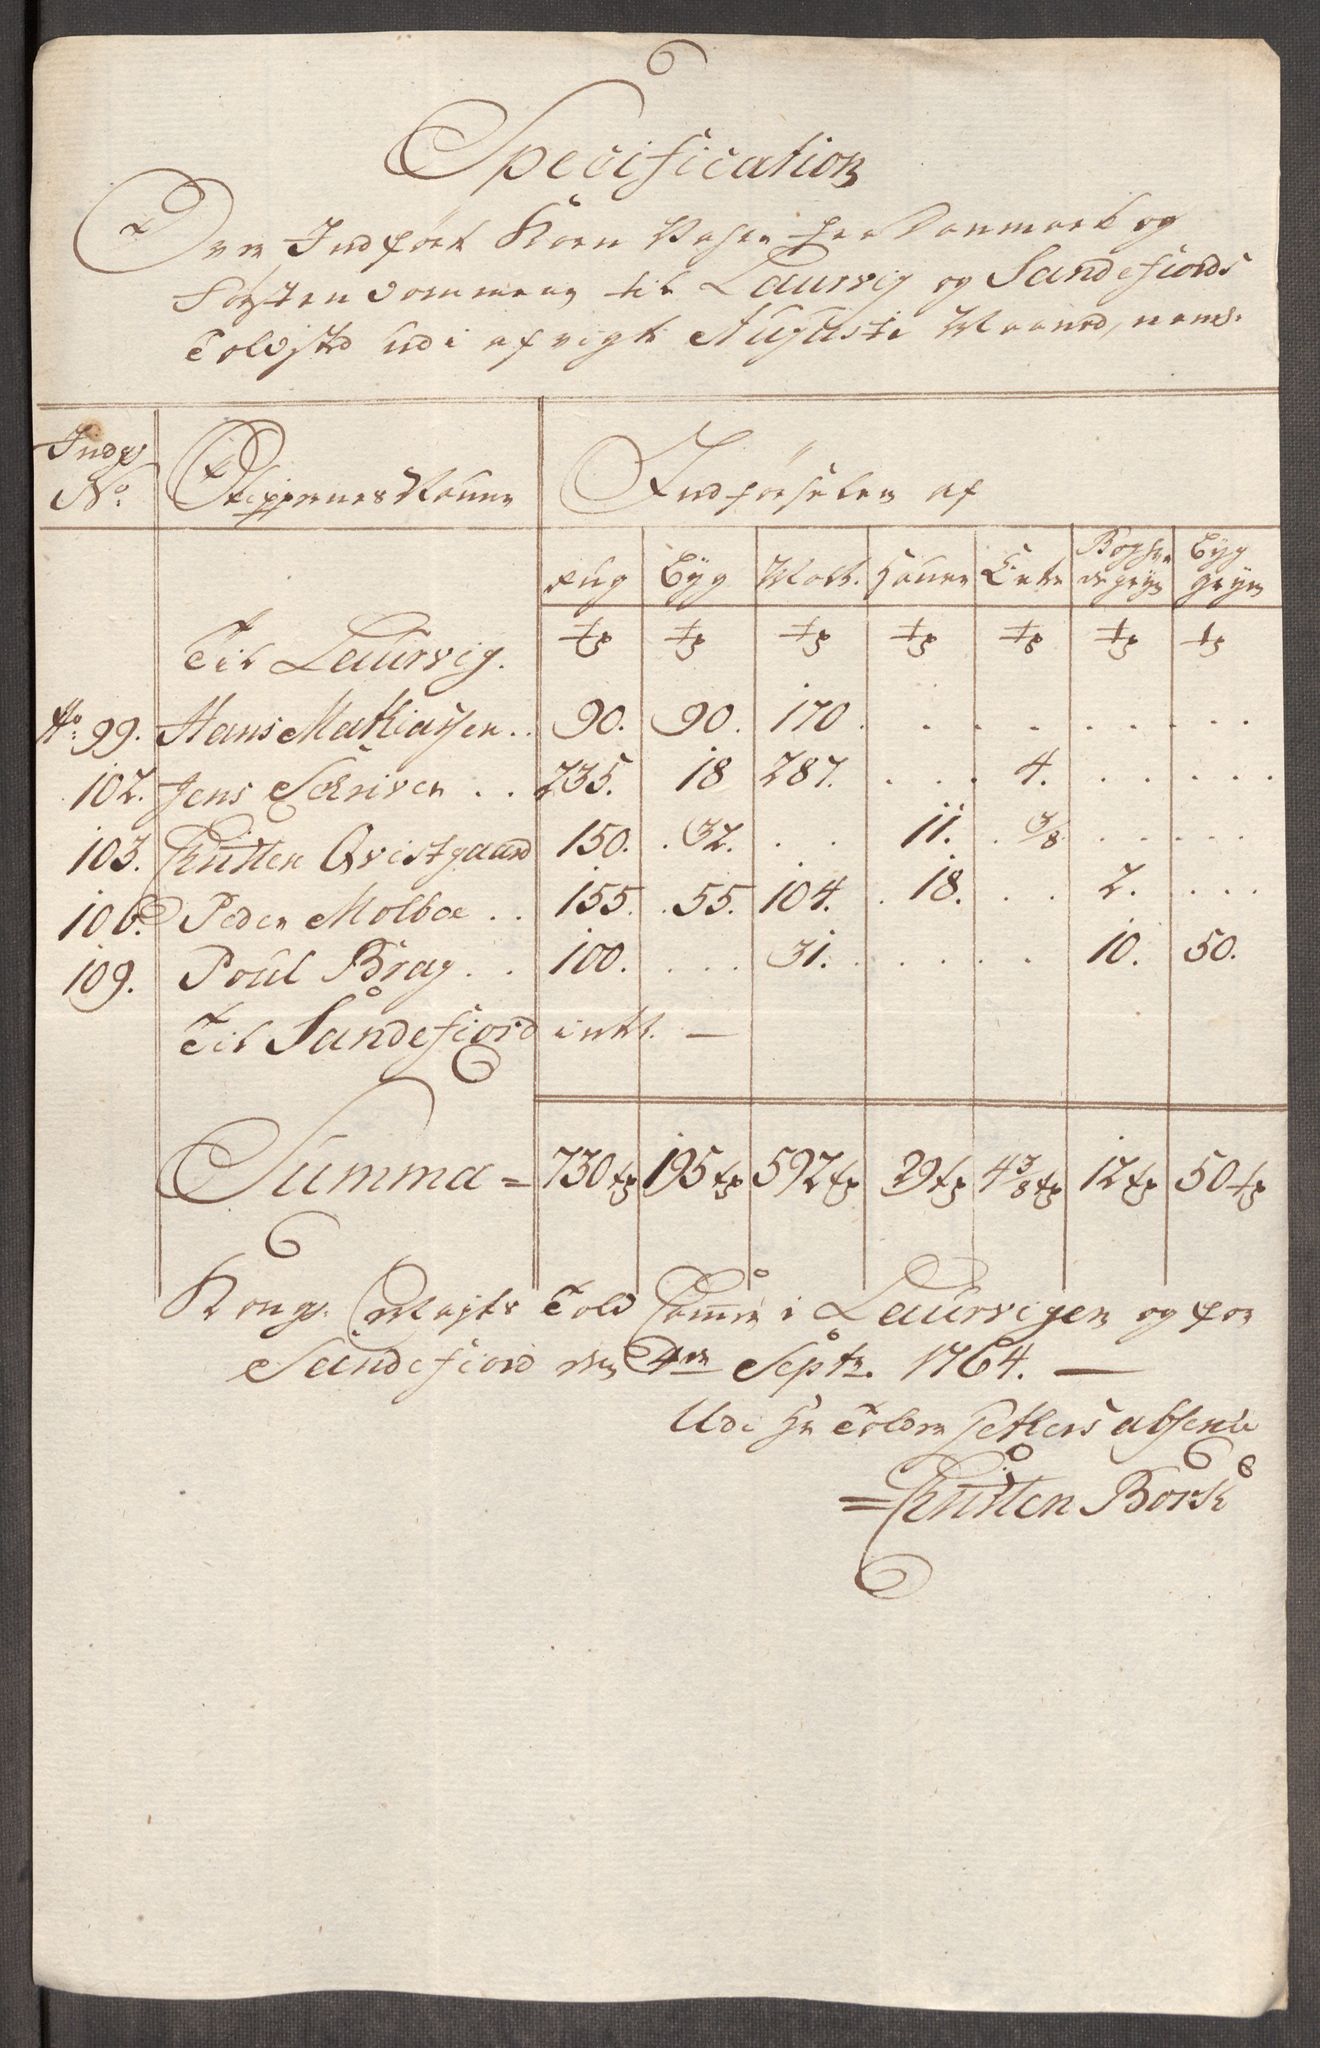 Specification
Over Indført Korn Vahre fra Danmark og
Førstendømmene til Laurvig og Sandefiords
Toldsted udi afvigte Augusti Maaned, neml.
Indg. Skippernes Nafne Indførselen af
No.
Rug Byg Malt. Hafre Erter Boghve- Byg
de gryn gryn
Til Laurvig. tr tr tr tr tr tr tr
No. 99. Hans Mathiasen . . 90. 90. 170 . . . . . . . . .
102. Jens Schriver . . 235. 18 287. . . . 4. . . . . .
103. Christen Qvistgaard 150. . 32. . . 11. . 3/8 . . . . .
106. Peder Molboe . . 155. . 55. 104. . 18. . . 2. . . .
109. Poul Brag . . 100. . . . 31. . . . . . 10. 50.
Til Sandefiord intet. —
Summa = 730 tr 195 tr 592 tr 29 tr 4 3/8 tr 12 tr 50 tr
Kongl. Mayts Told Cammer i Laurvigen og for
Sandefiord den 4de Septr. 1764. —
Udi Hr Tolder Setlers absence
= Christen Borse